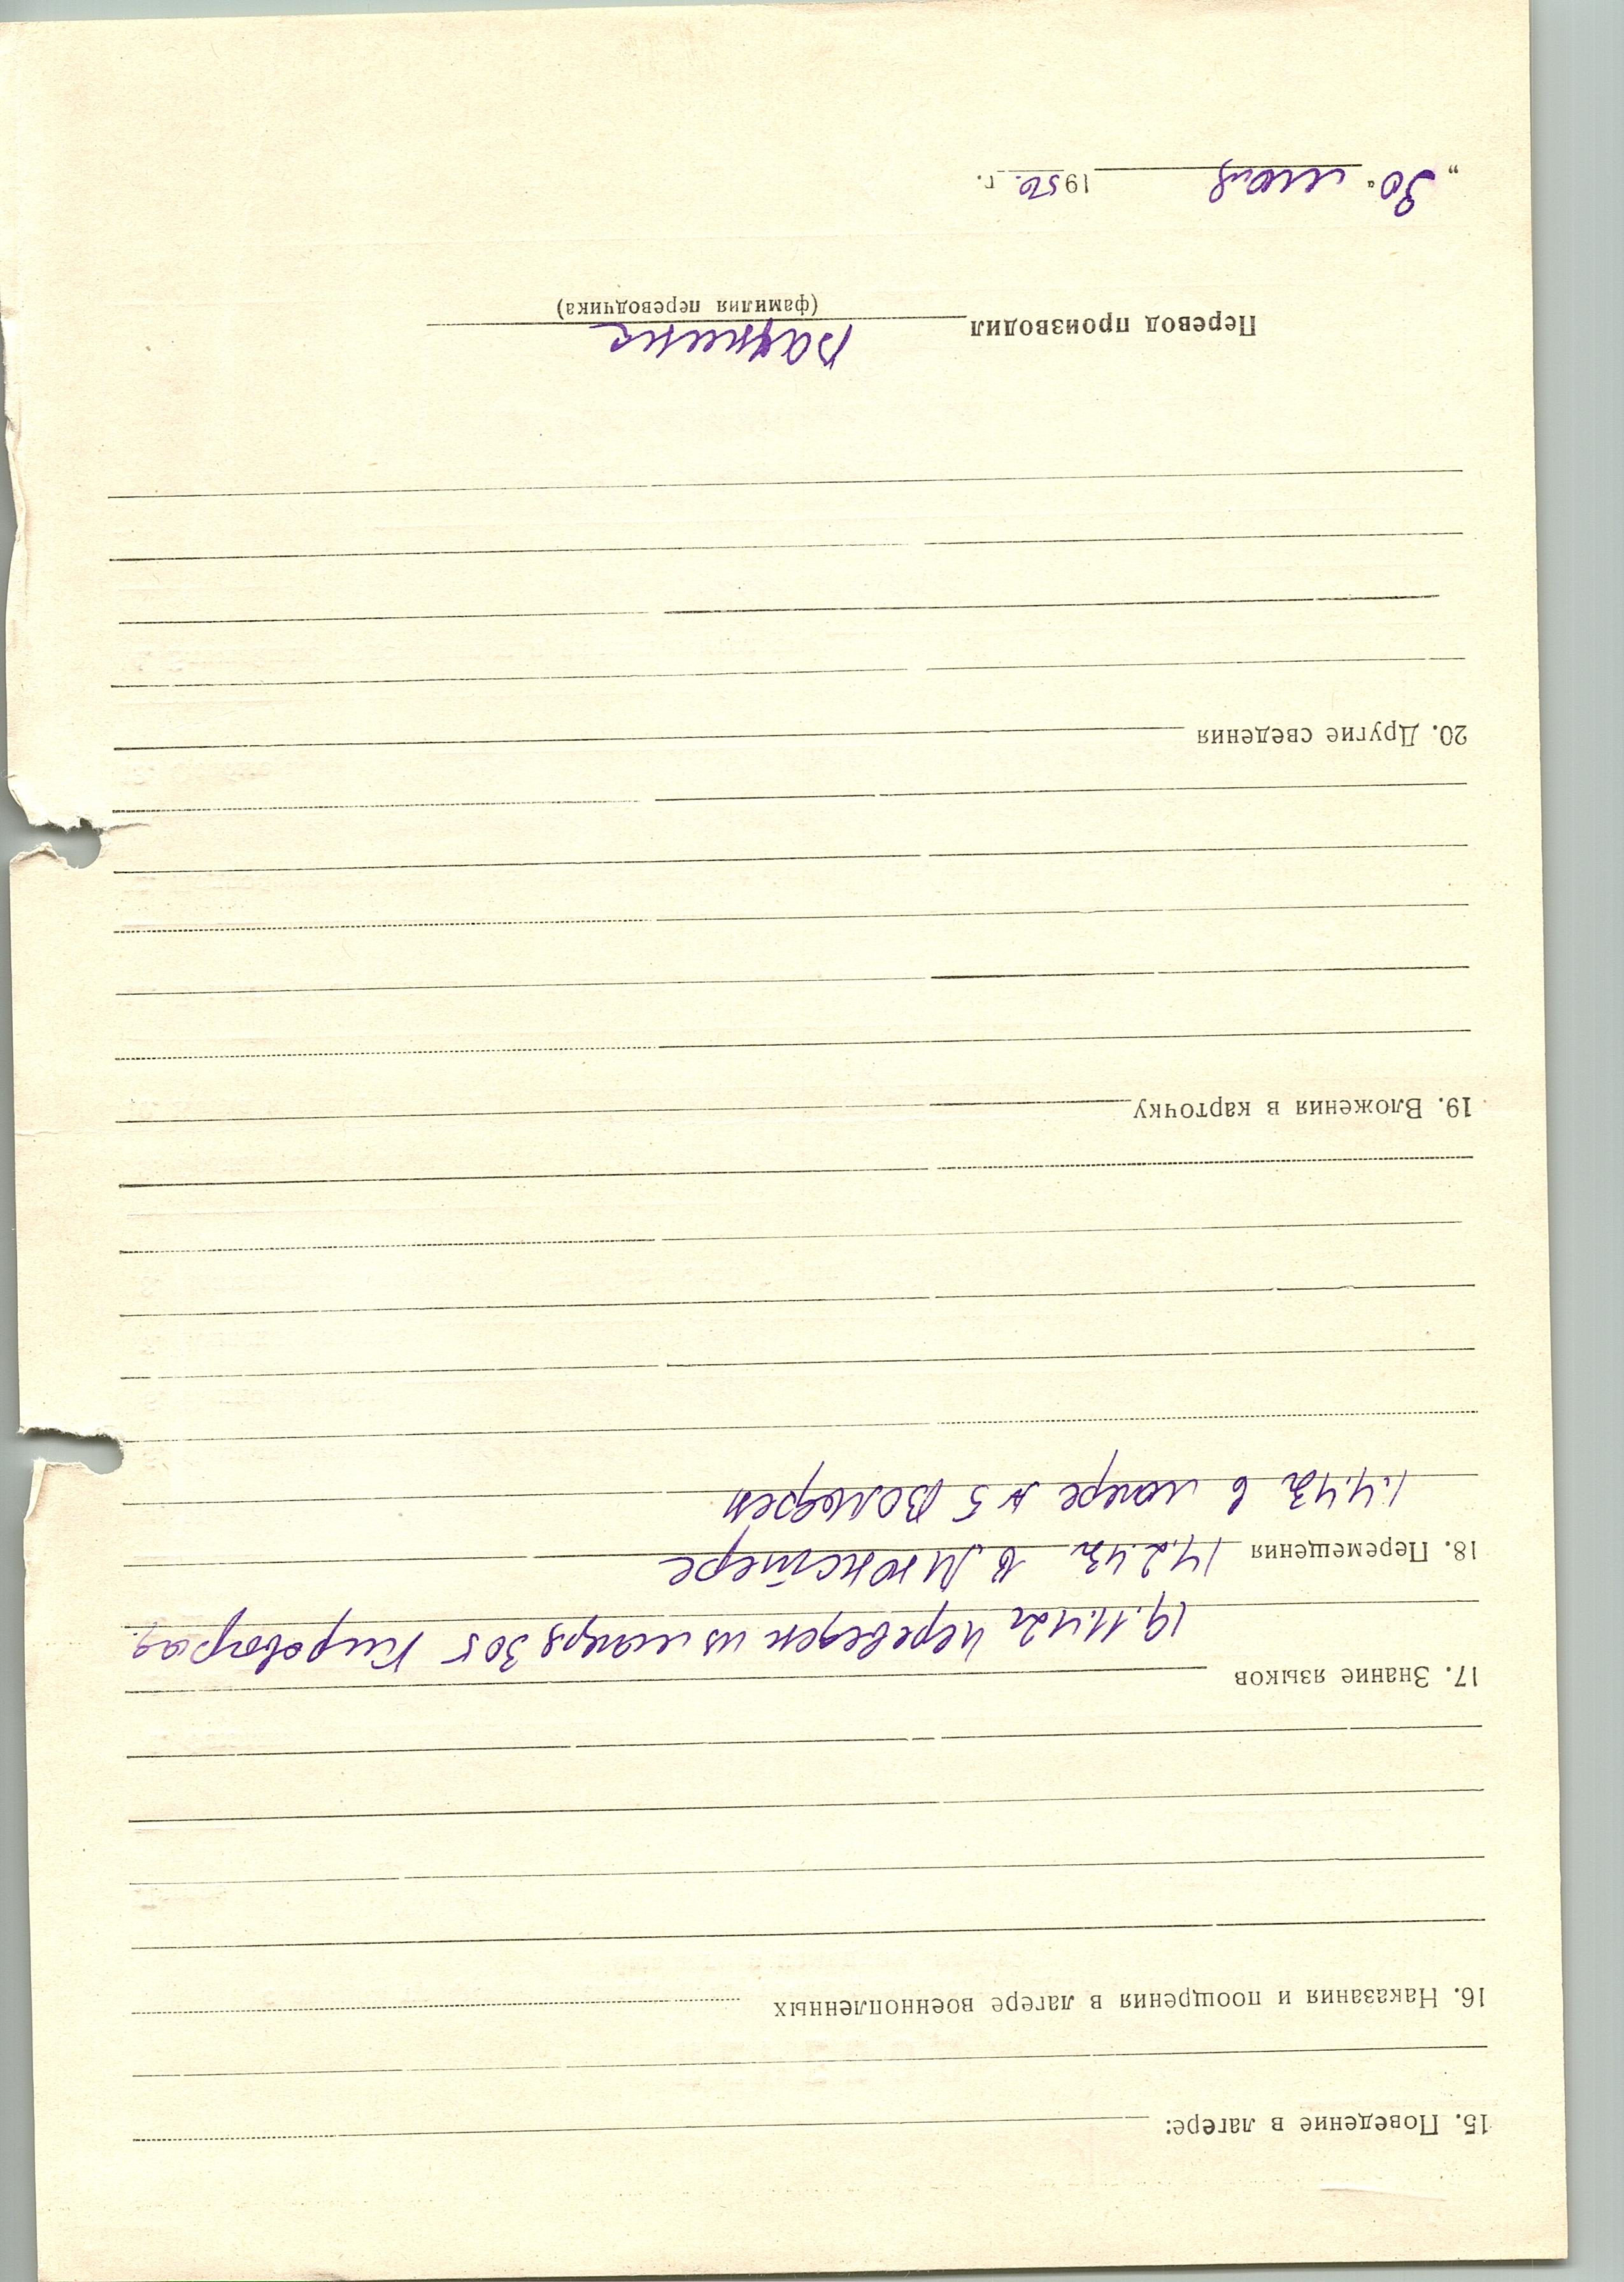 15. Поведение в лагере:
16. Наказания и поощрения в лагере военнопленных
17. Знание языков
19.11.42г переведен из лагеря 305 Кировоград.
18. Перемещения 14.2.43г в Мюнстере
1.4.43г в лагере № 5
19. Вложения в карточку
20. Другие сведения
Перевод производил
(фамилия переводчика)
„30“ 1950. г.